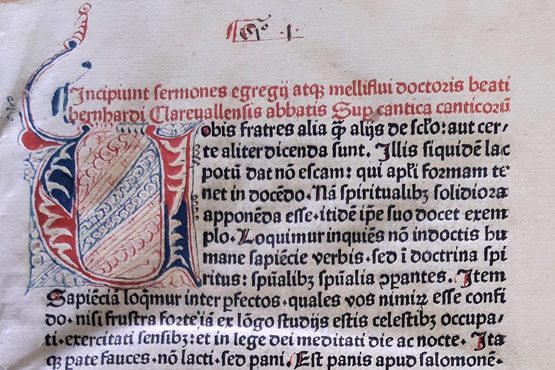 Incipiunt sermones egregij atqꝫ melliflui doctoris beati
bernhardi Clareuallensis abbatis Sup cantica canticorū
Vobis fratres alia ꝙ̄ alijs de sc̄ło: aut cer⸗
te aliter dicenda sunt. Illis siquidē lac
potū dat nō escam: qui apłi formam te⸗
net in docēdo. Nā spiritualibꝫ solidiora
apponēda esse. itidē ip̄e suo docet exem
plo. Loquimur inquiēs nō in doctis hu
mane sapiēcie verbis. sed ī doctrina spi
ritus: spūalibꝫ spūalia ꝯpantes. Item
Sapiēciā loqm̄ur inter pfectos. quales vos nimiꝝ esse confi
do. nisi frustra forte iā ex lōgo studijs estis celestibꝫ occupa⸗
ti. exercitati sensibꝫ: et in lege dei meditati die ac nocte. Ita
qꝫ pate fauces. nō lacti. sed pani. Est panis apud salomonē.